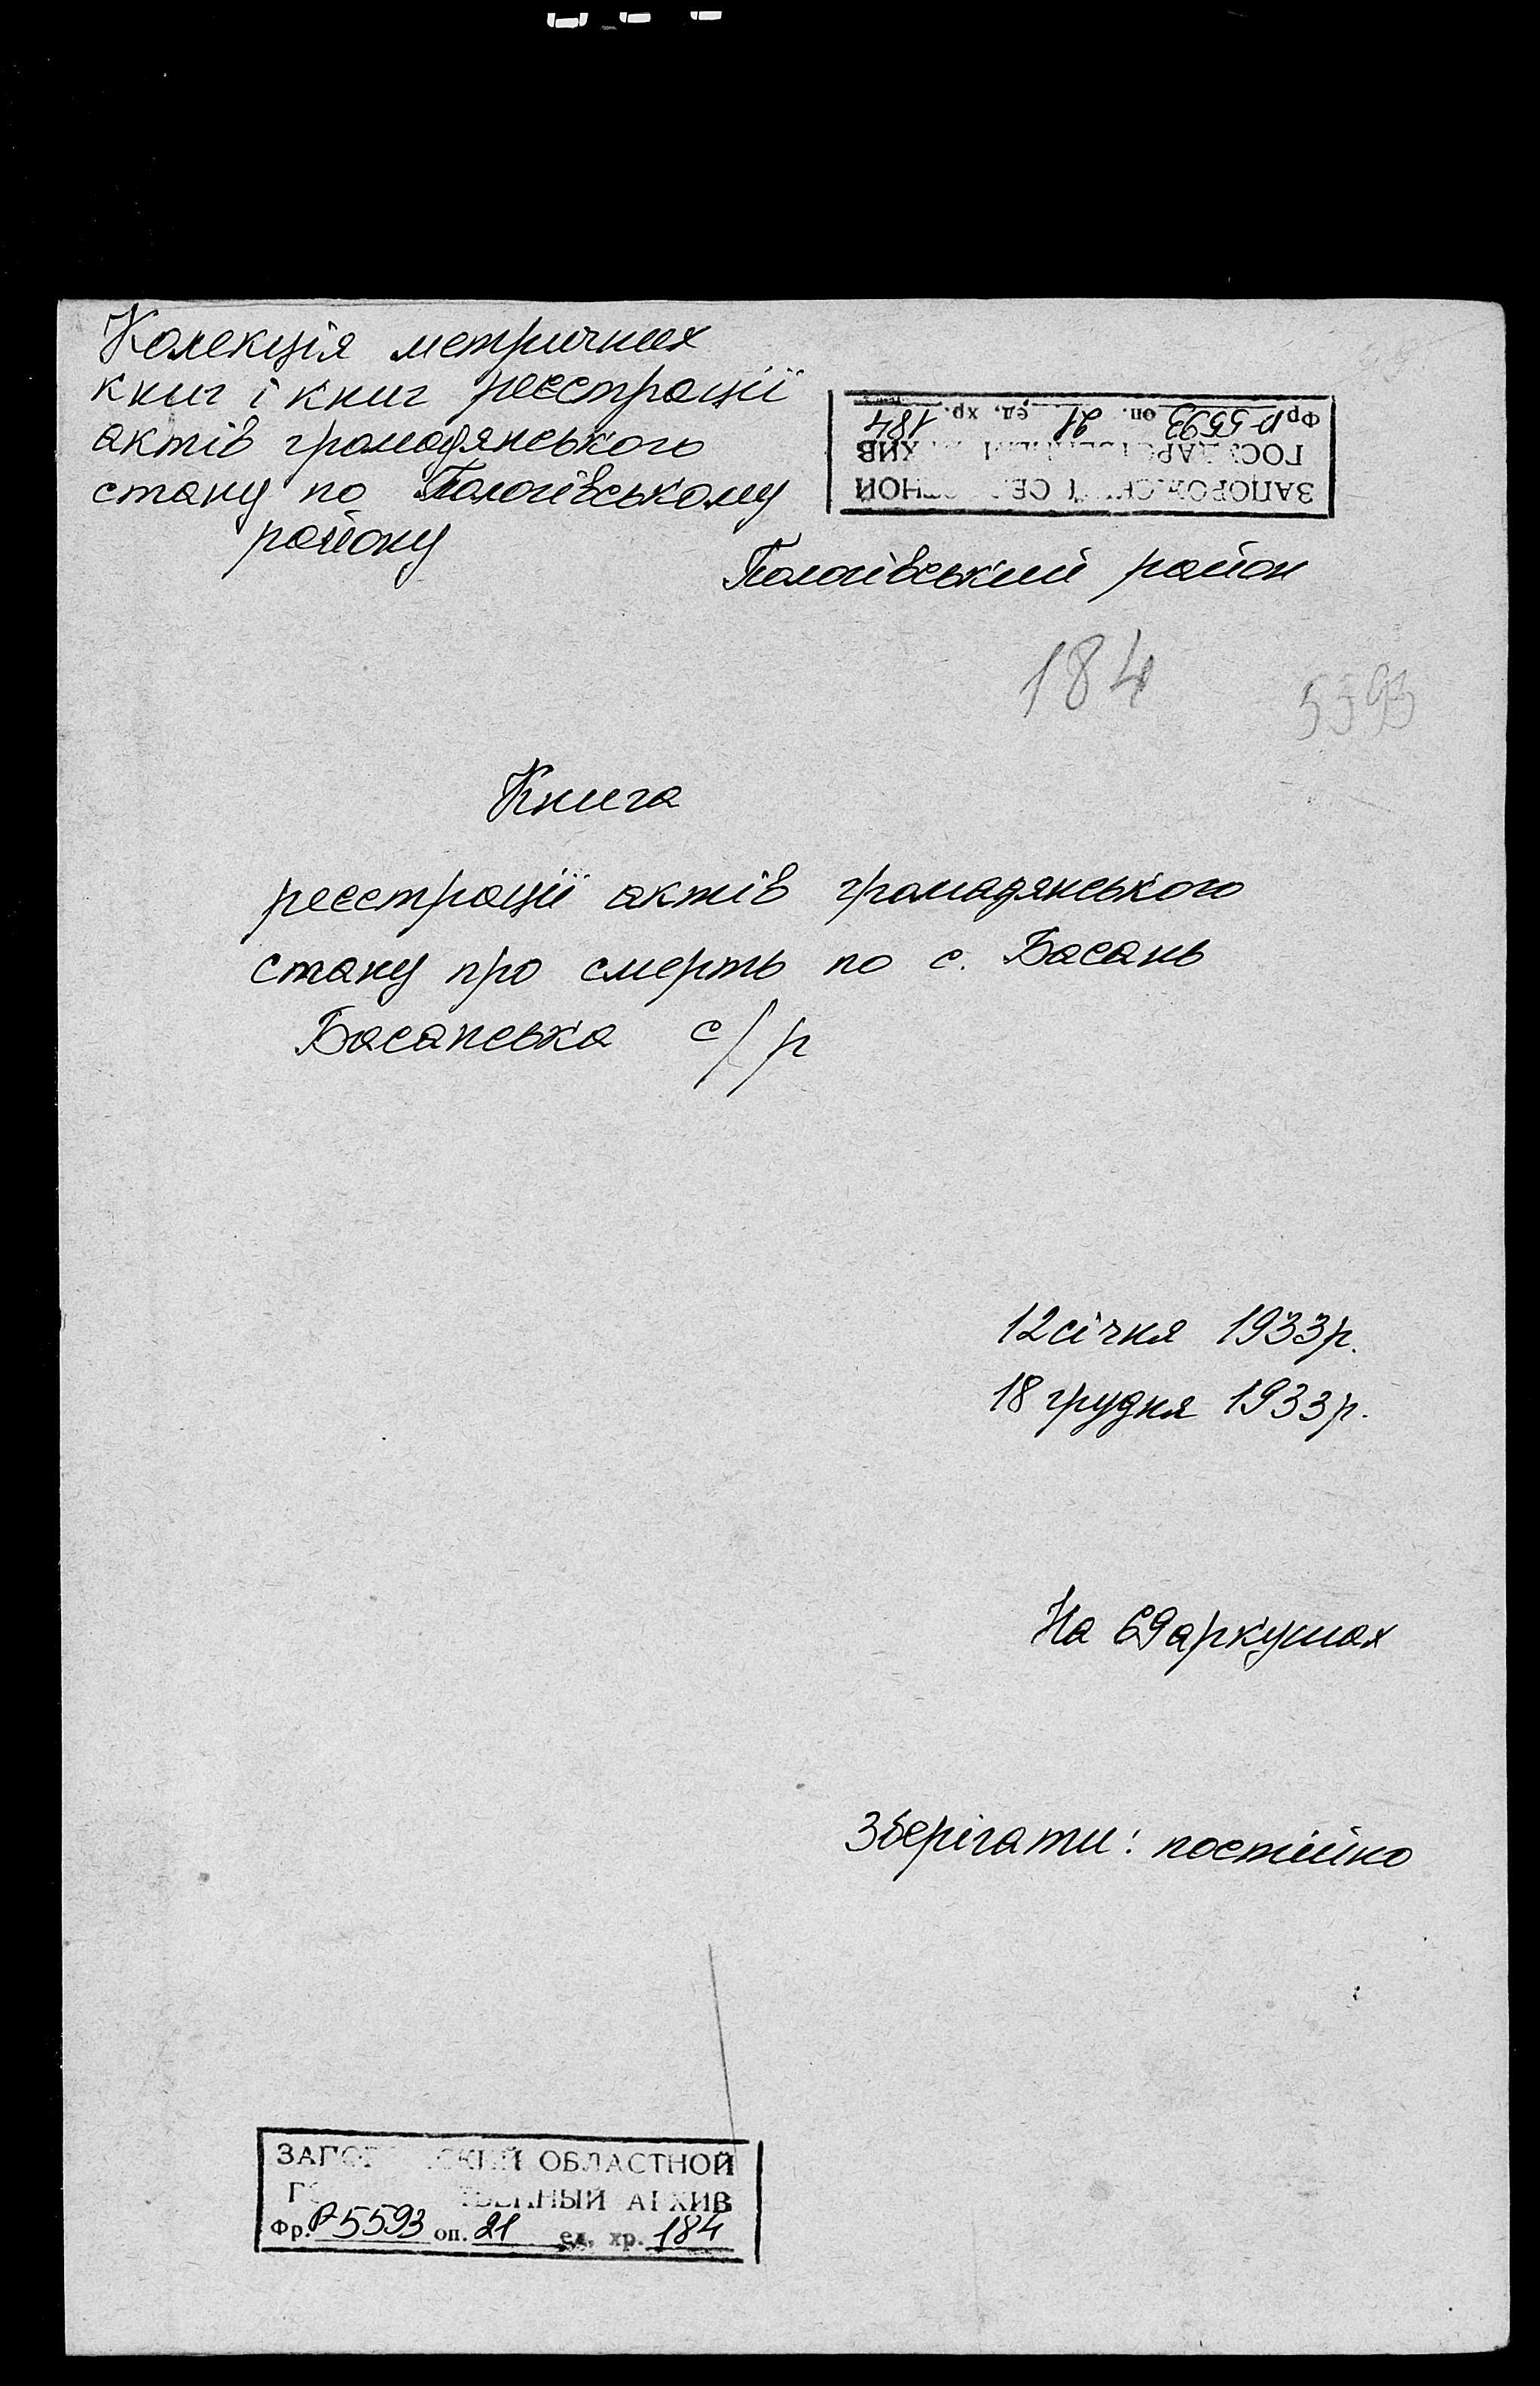 Колекція метричних
книг і книг реєстрації
актів громадянського
стану по Пологівському
району
ЗАПОРОЖСКИЙ ОБЛАСТНОЙ
ГОСУДАРСТВЕННЫЙ АРХИВ
Фр. Р-5593 оп. 21 ед. хр. 184
Пологівський район
184
5593
Книга
реєстрації актів громадянського
стану про смерть по с. Басань
Басанська с/р
12 січня 1933 р.
18 грудня 1933 р.
На 69 аркушах
Зберігати: постійно
ЗАПОРОЖСКИЙ ОБЛАСТНОЙ
ГОСУДАРСТВЕННЫЙ АРХИВ
Фр. Р-5593 оп. 21 ед. хр. 184